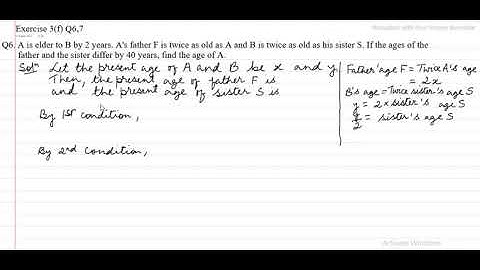 Exercise 3(f) Q6,7
Q6. A is elder to B by 2 years. A's father F is twice as old as A and B is twice as old as his sister S. If the ages of the
father and the sister differ by 40 years, find the age of A.
Solⁿ Let the present age of A and B be x and y
Then, the present age of father F is
and the present age of sister S is
By 1st condition,
By 2nd condition,
Father' age F = Twice A's age
= 2x
B's age = Twice sister's age S
y = 2 × sister's age S
y/2 = sister's age S